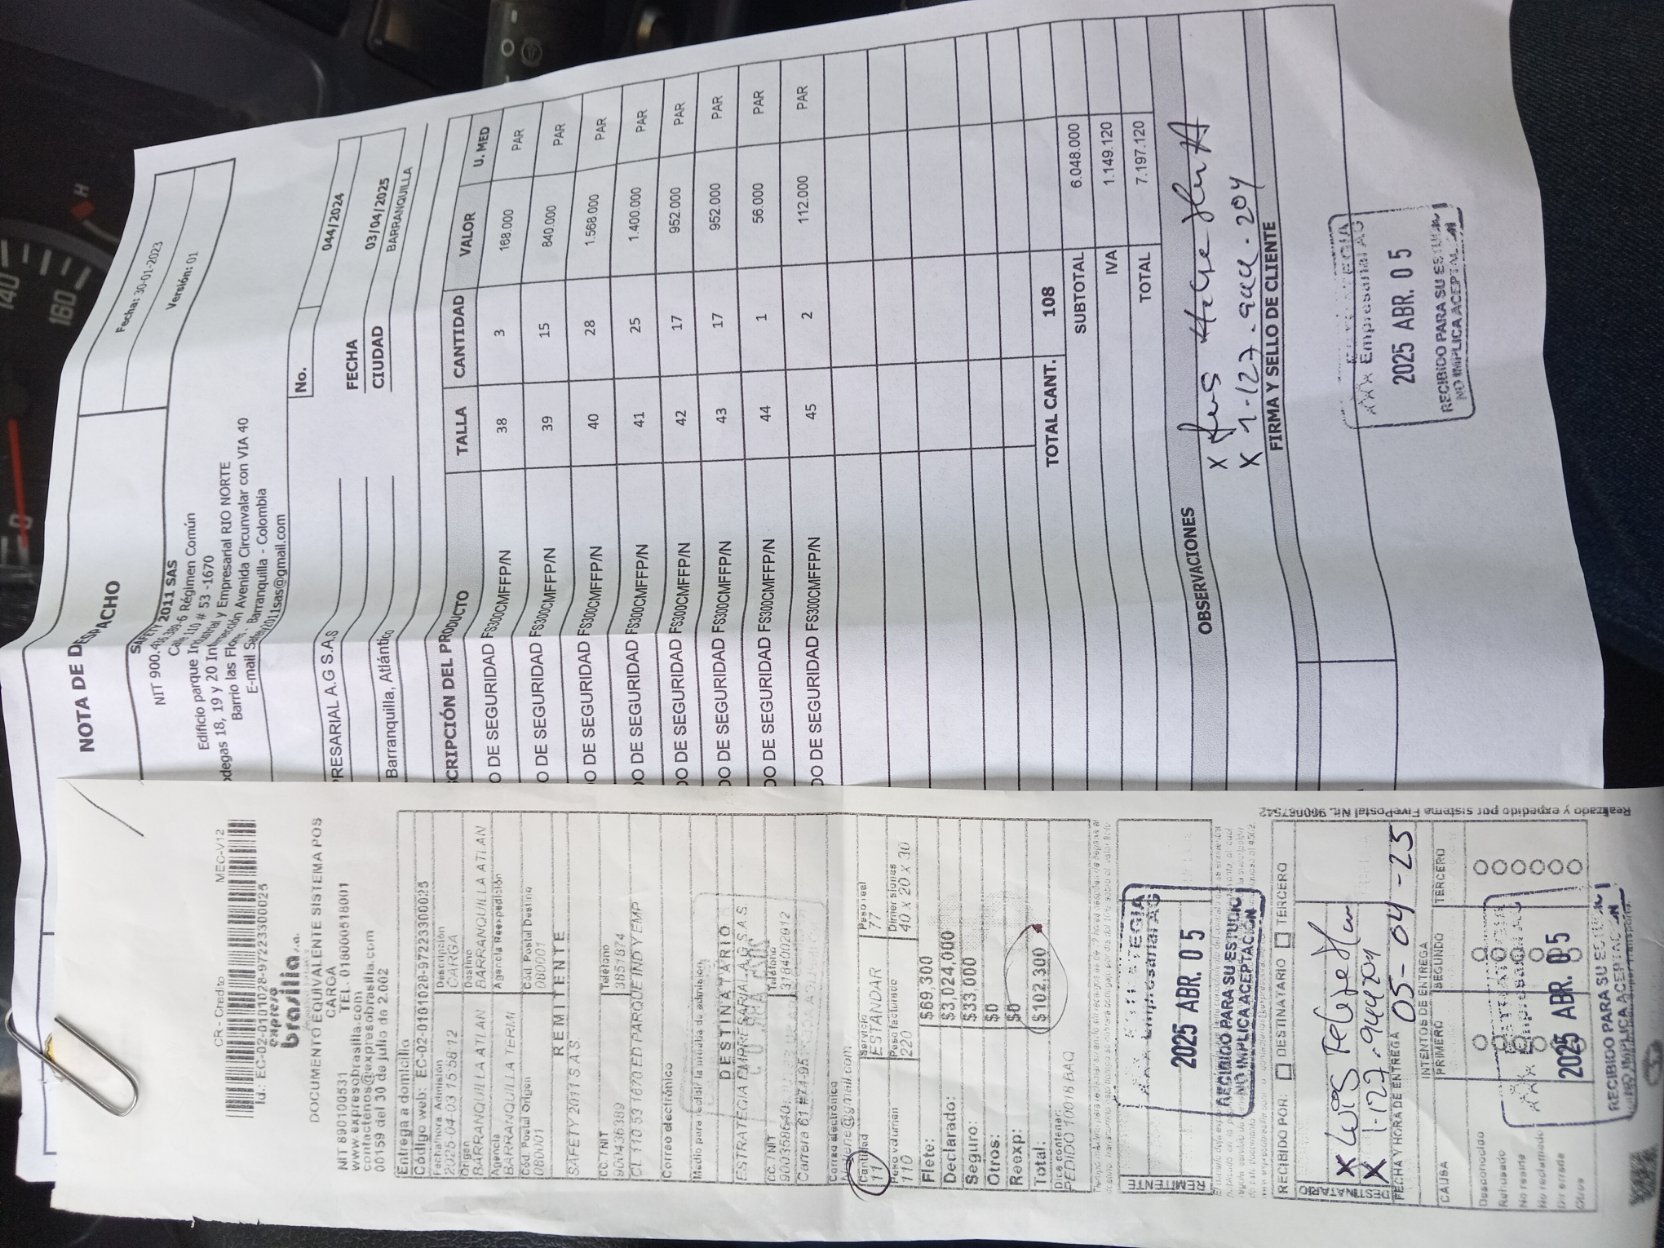 NOTA DE DESPACHO
Fecha: 30-01-2023
Versión: 01
SAFETY 2011 SAS
NIT 900.4
6 Régimen Común
# 53 -1670
Edificio parque Industrial y Empresarial RIO NORTE
degas 18, 19 y 20 Intersección Avenida Circunvalar con VIA 40
Barrio las Flores, Barranquilla - Colombia
E-mail 2011sas@gmail.com
No. 044/2024
PRESARIAL A.G S.A.S
FECHA 03/04/2025
Barranquilla, Atlántico
CIUDAD BARRANQUILLA
CRIPCIÓN DEL PRODUCTO TALLA CANTIDAD VALOR U. MED
O DE SEGURIDAD FS300CMFFP/N 38 3 168.000 PAR
O DE SEGURIDAD FS300CMFFP/N 39 15 840.000 PAR
DO DE SEGURIDAD FS300CMFFP/N 40 28 1.568.000 PAR
DO DE SEGURIDAD FS300CMFFP/N 41 25 1.400.000 PAR
DO DE SEGURIDAD FS300CMFFP/N 42 17 952.000 PAR
DO DE SEGURIDAD FS300CMFFP/N 43 17 952.000 PAR
DO DE SEGURIDAD FS300CMFFP/N 44 1 56.000 PAR
DO DE SEGURIDAD FS300CMFFP/N 45 2 112.000 PAR
TOTAL CANT. 108
SUBTOTAL 6.048.000
IVA 1.149.120
TOTAL 7.197.120
OBSERVACIONES
X
X 1-127-944-204
FIRMA Y SELLO DE CLIENTE
Empresarial AG
2025 ABR. 05
RECIBIDO PARA SU ESTUDIO
NO IMPLICA ACEPTACION
CR - Credito MEC-V12
Id.: EC-02-0101028-972233000025
expreso
brasilia s.a.
DOCUMENTO EQUIVALENTE SISTEMA POS
CARGA
NIT 890100531 TEL. 018000518001
www.expresobrasilia.com
contactenos@expresobrasilia.com
00159 del 30 de julio de 2.002
Entrega a domicilia
Código web: EC-02-0101028-972233000025
Fecha/hora Admisión Descripción
2025-04-03 15:58:12 CARGA
Origen Destino
BARRANQUILLA ATLAN BARRANQUILLA ATLAN
Agencia Agencia Reexpedición
BARRANQUILLA TERMI
Cód. Postal Origen Cód. Postal Destino
080001 080001
REMITENTE
SAFETY 2011 S.A.S
CC. / NIT Teléfono
900436389 3851874
CL 110 53 1670 ED PARQUE IND Y EMP
Correo electrónico
DESTINATARIO
ESTRATEGIA EMPRESARIAL A.G S.A.S
CC. / NIT Teléfono
Correo electrónico
Cantidad Servicio Peso real
11 ESTANDAR 77
Peso volumen Peso facturado Dimensiones
110 220 40 x 20 x 30
Flete: $69,300
Declarado: $3,024,000
Seguro: $33,000
Otros: $0
Reexp: $0
Total: $102,300
Dice contener:
PEDIDO 10016 BAQ
REMITENTE
Empresarial AG
2025 ABR. 05
RECIBIDO PARA SU ESTUDIO
NO IMPLICA ACEPTACION
RECIBIDO POR: DESTINATARIO TERCERO
DESTINATARIO
X Luis Felipe
X 1-127-944204
FECHA Y HORA DE ENTREGA 05-04-25
INTENTOS DE ENTREGA
CAUSA PRIMERO SEGUNDO TERCERO
Desconocido
Rehusado
No reside
No reclamado
Dir. errada
Otros
2025 ABR. 05
RECIBIDO PARA SU ESTUDIO
NO IMPLICA
Realizado y expedido por sistema FivePostal Nit. 900087542
H
140
160